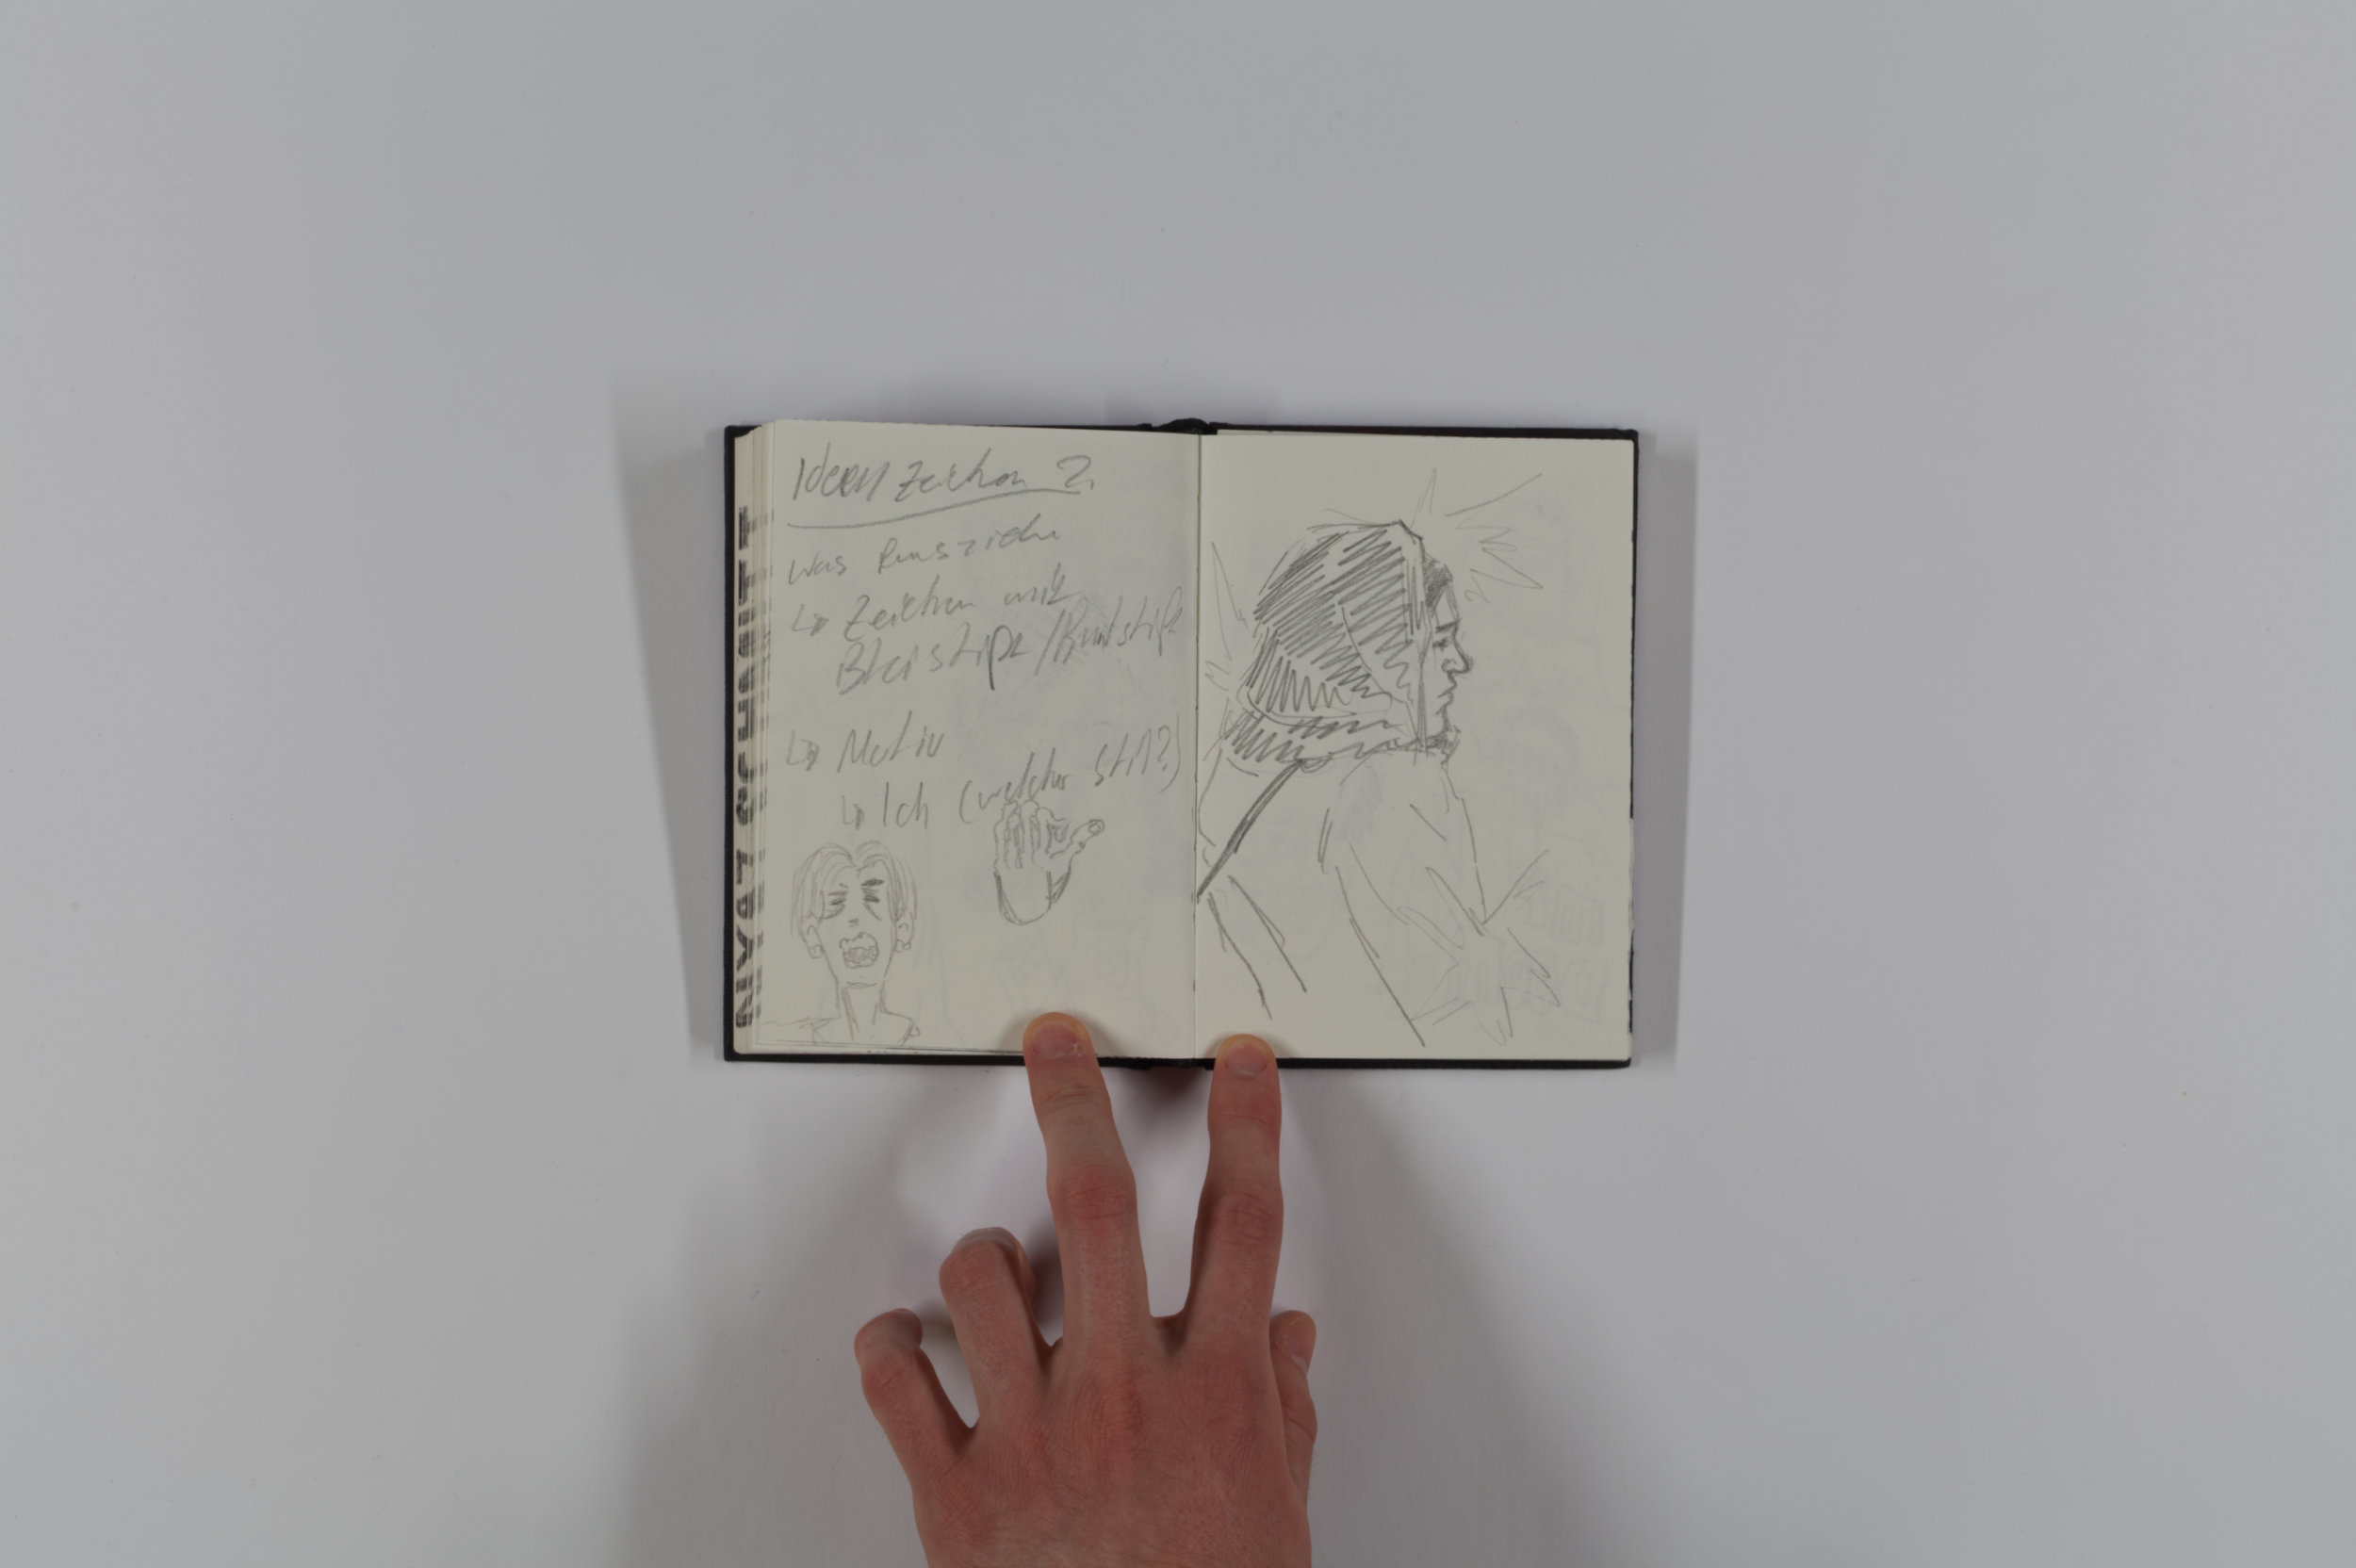 Ideen Zeichen 2
Was Rausziehe
↳ Zeichen mit
Bleistift/Buntstift
↳ Motiv
↳ Ich (welcher Stil?)
SCHMITT